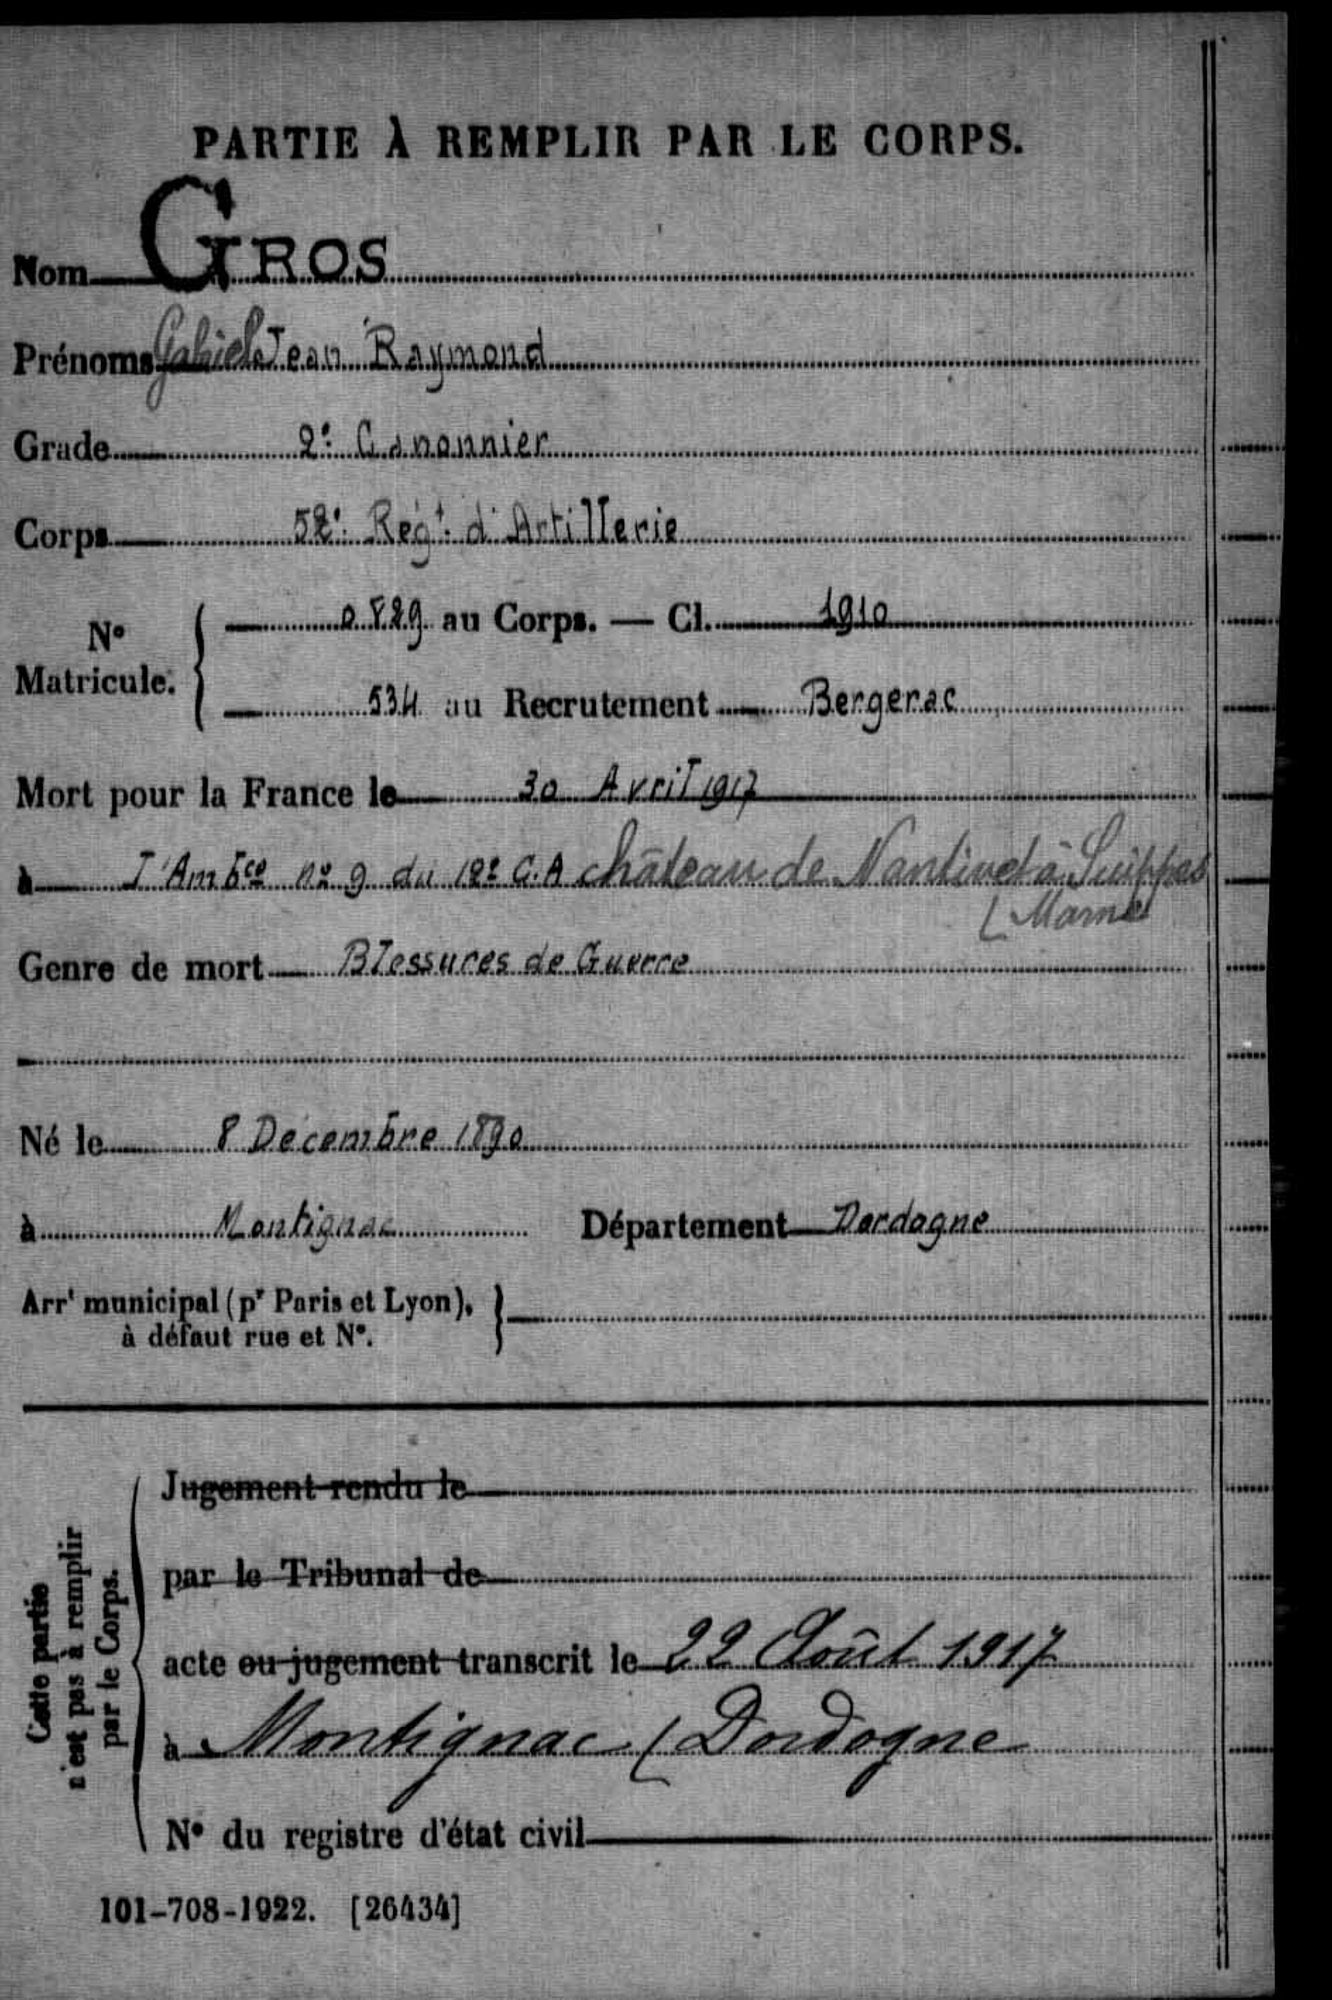 PARTIE À REMPLIR PAR LE CORPS.
Nom GROS
Prénoms Gabriel Jean Raymond
Grade 2e Canonnier
Corps 52e Régt d'Artillerie
No Matricule. { 0829 au Corps. — Cl. 1910
534 au Recrutement Bergerac
Mort pour la France le 30 Avril 1917
à l'Ambce no 9 du 18e C.A château de Nantivet à Suippes
( Marne
Genre de mort Blessures de Guerre
Né le 8 Décembre 1890
à Montignac Département Dordogne
Arrt municipal (pr Paris et Lyon), à défaut rue et No. }
Cette partie n'est pas à remplir par le Corps.
Jugement rendu le
par le Tribunal de
acte ou jugement transcrit le 22 Août 1917
à Montignac (Dordogne
No du registre d'état civil
101-708-1922. [26434]